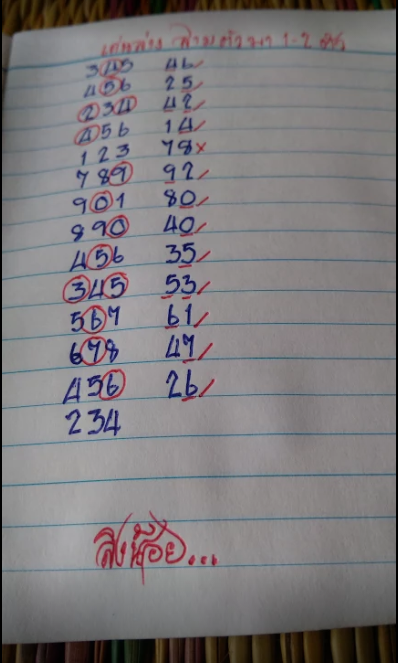 เด่นล่าง สามตัวมา 1-2 ตัว
345 46
456 25
234 42
456 14
123 78×
789 92
901 80
890 40
456 35
345 53
567 61
678 47
456 26
234
ลิงน้อย...